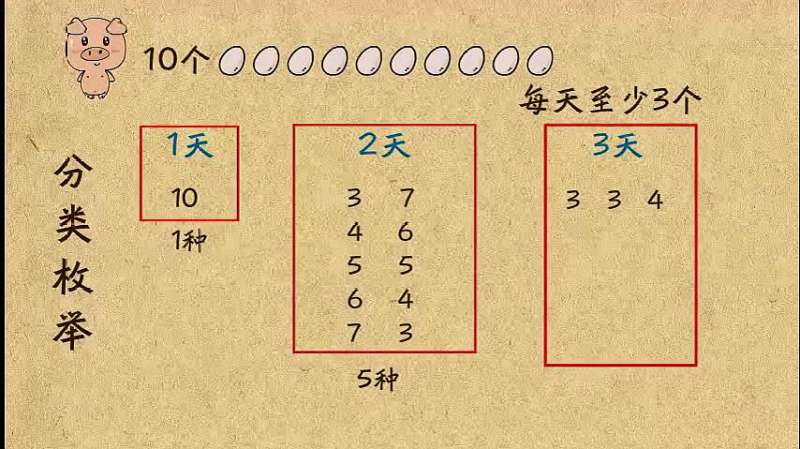 10个
每天至少3个
分类枚举
1天
10
1种
2天
3 7
4 6
5 5
6 4
7 3
5种
3天
3 3 4